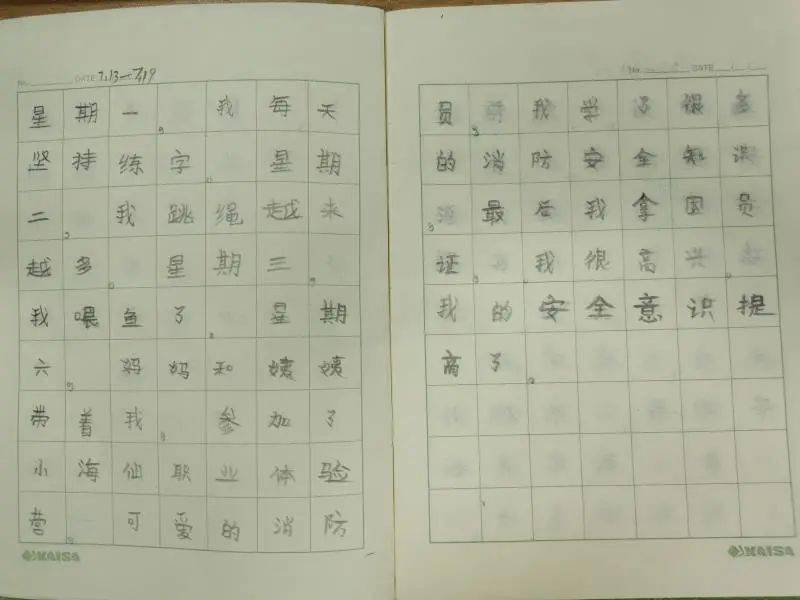 No. DATE 7.13-7.19
星期一,我每天
坚持练字。星期
二,我跳绳越来
越多。星期三,
我喂鱼了。星期
六,妈妈和姨姨
带着我,参加了
小海仙职业体验
营,可爱的消防
KAISA
No. DATE
员,我学了很多
的消防安全知识
,最后我拿国员
证,我很高兴。
我的安全意识提
高了。
KAISA